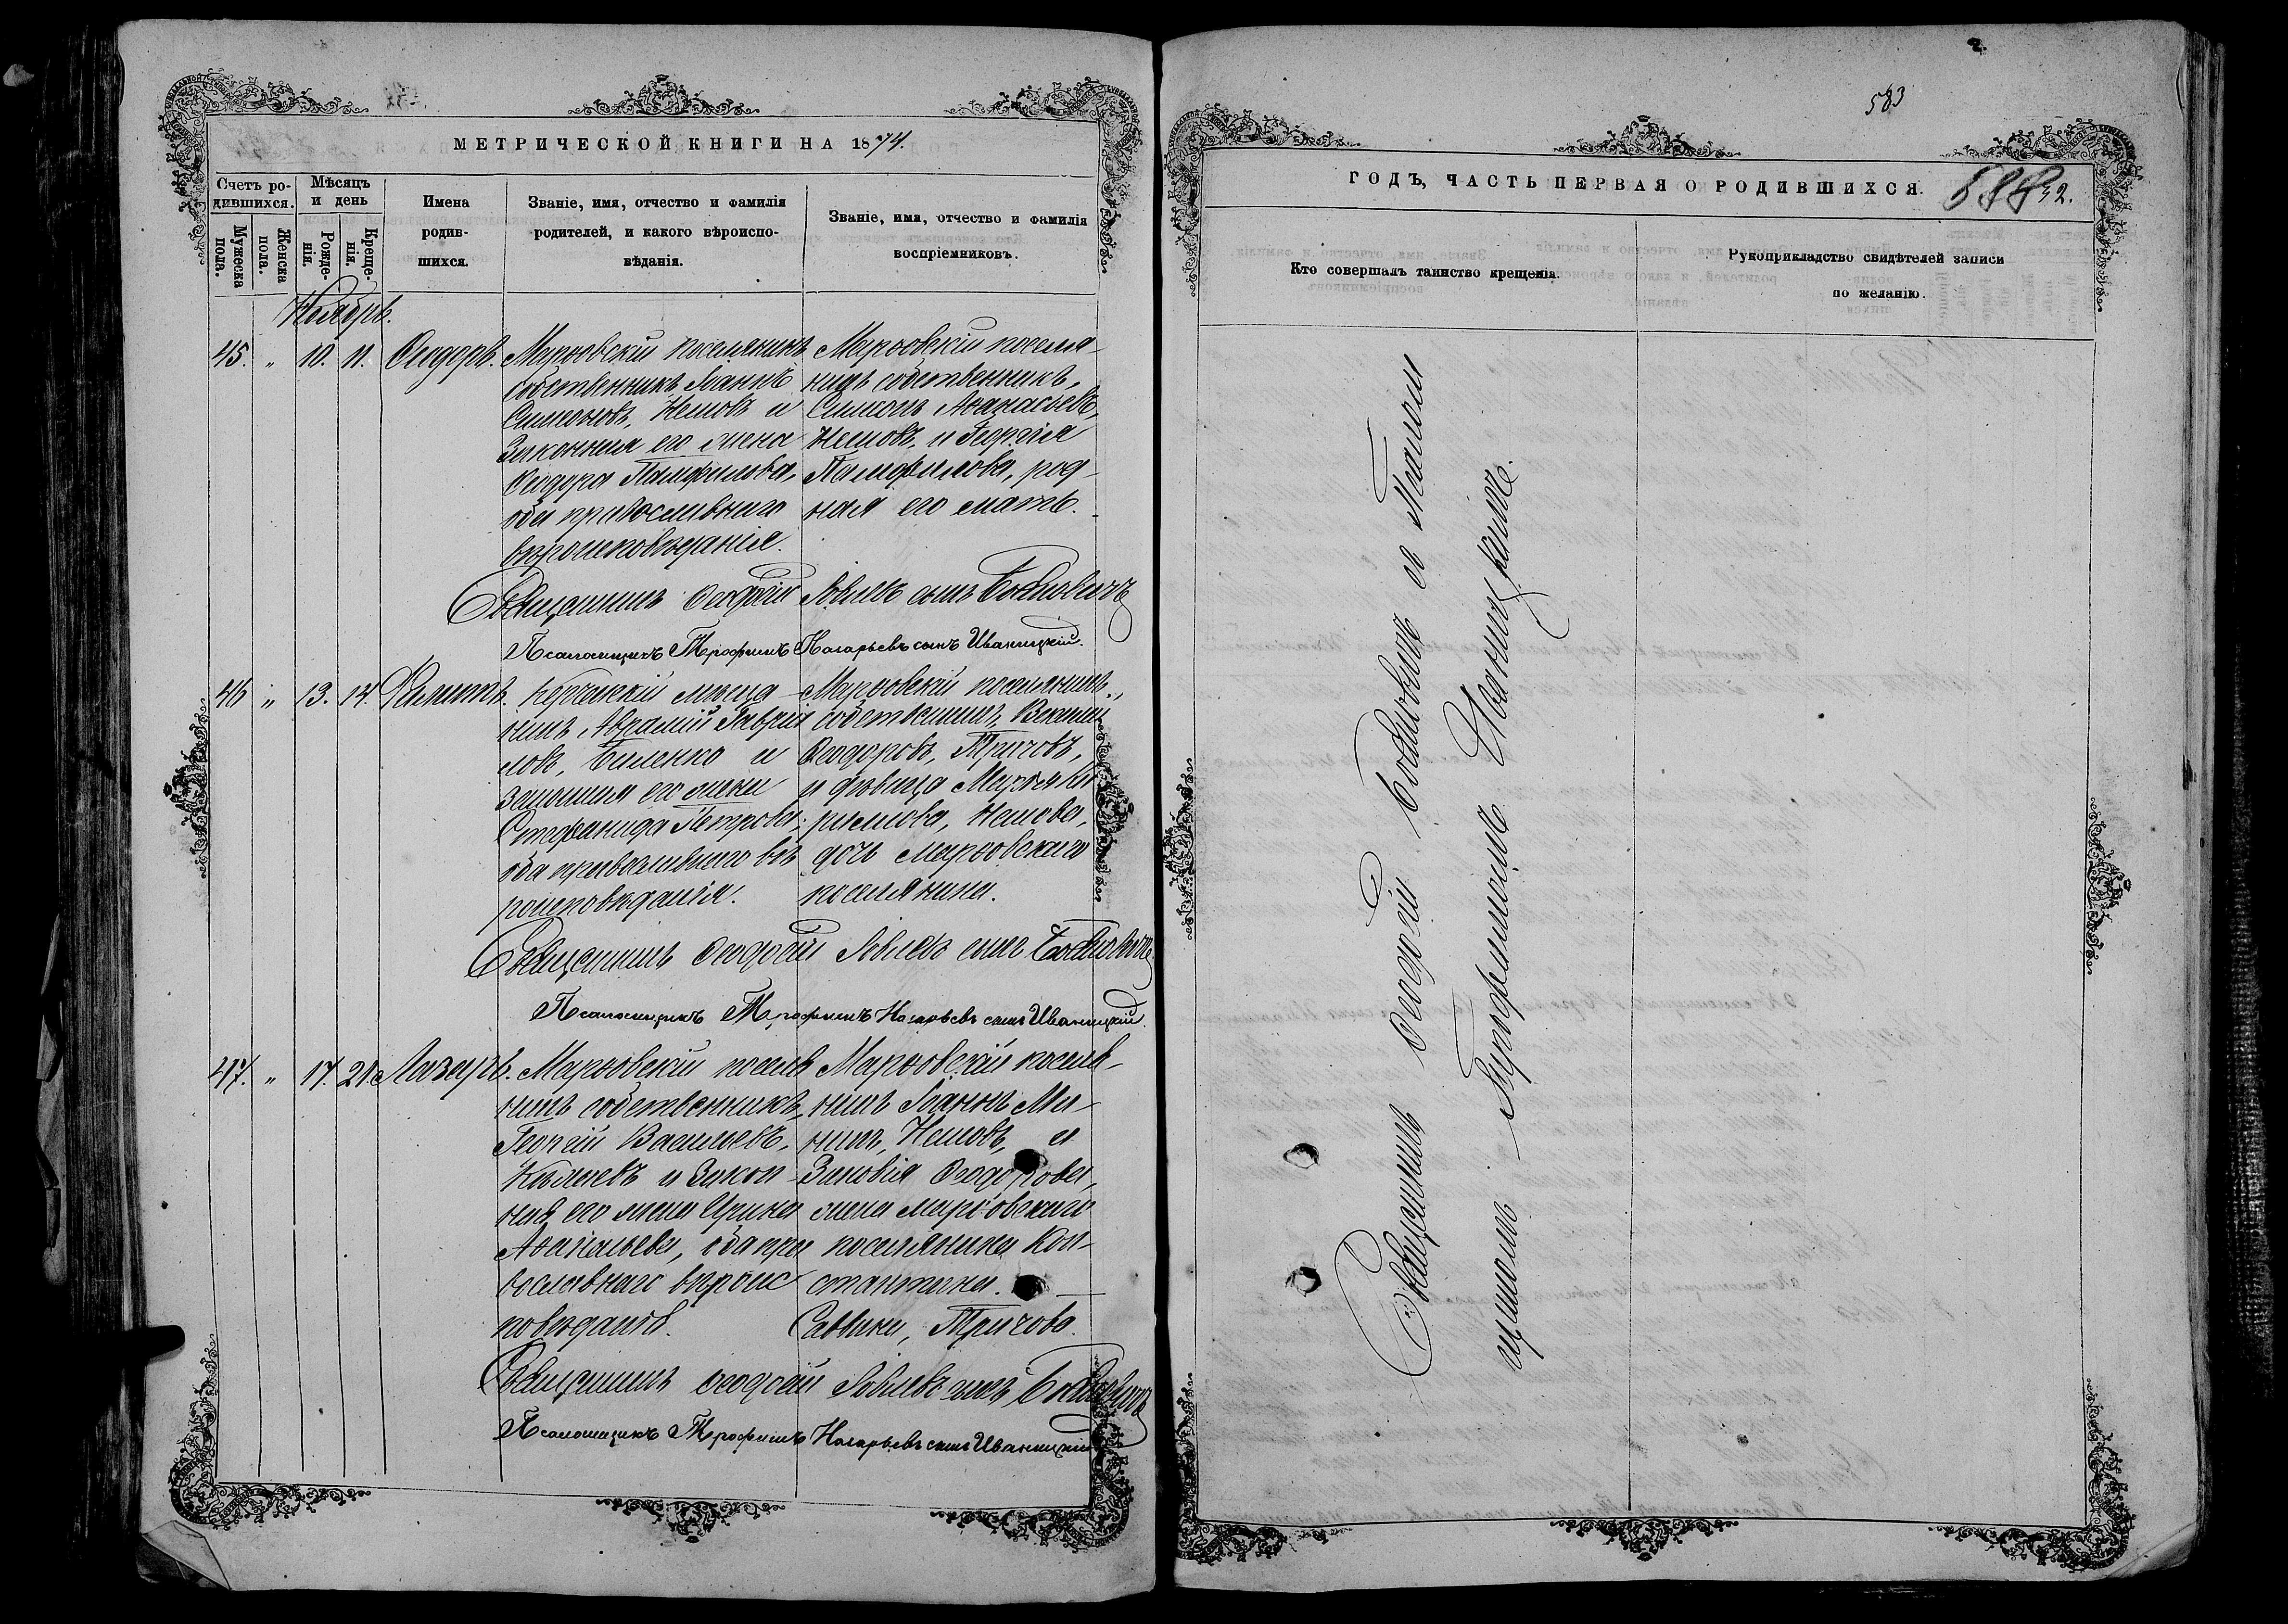 МЕТРИЧЕСКОЙ КНИГИ НА 1874.
Счетъ ро-
дившихся.
Мѣсяцъ
и день
Имена
родив-
шихся.
Званіе, имя, отчество и фамилія
родителей, и какого вѣроиспо-
вѣданія.
Званіе, имя, отчество и фамилія
воспріемниковъ.
Мужеска
пола.
Женска
пола.
Рожде-
нія.
Креще-
нія.
Ноябрь.
45. " 10. 11. Ѳеодоръ. Марѳовскій поселянинъ
собственникъ Іоаннъ
Симеоновъ, Нешовъ и
Законная его жена
Ѳеодора Памфилова,
оба православнаго
вѣроисповѣданія.
Марѳовскій поселя-
нинъ собственникъ,
Симеонъ Аѳанасьевъ,
Нешовъ, и Георгія
Памфилова, род-
ная его мать.
Священникъ Ѳеодосій Іовлевъ сынъ
Псаломщикъ Трофимъ Назарьевъ сынъ Иваницкій.
46 " 13. 14. Филиппъ. Керченскій мѣща-
нинъ Авраамій Гаврiи
ловъ, Биленко и
законная его жена
Стефанида Петрова,
оба православнаго вѣ
роисповѣданія.
Марѳовскій поселянинъ,
собственникъ,
Ѳеодоровъ, Тричовъ,
и дѣвица Марѳа Ки
рилова, Нешова,
дочь Марѳовскаго
поселянина.
Священникъ Ѳеодосій Іовлевъ сынъ
Псаломщикъ Трофимъ Назарьевъ сынъ Иваницкій.
47. " 17. 21. Лазарь. Марѳовскій поселя
нинъ собственникъ,
Георгій Васильевъ,
и Закон
ная его жена Ирина
Аѳанасьева, оба пра
вославнаго вѣроис
повѣданія.
Марѳовскій поселя-
нинъ Іоаннъ Ми-
нинъ, Нешовъ, и
Зиновія Ѳеодорова,
жена марѳовскаго
поселянина Кон-
стантина.
Саввина, Тричова.
Священникъ Ѳеодосій Іовлевъ сынъ
Псаломщикъ Трофимъ Назарьевъ сынъ Иваницкій
583
ГОДЪ, ЧАСТЬ ПЕРВАЯ О РОДИВШИХСЯ.
32.
Кто совершалъ таинство крещенія.
Рукоприкладство свидѣтелей записи
по желанію.
Священникъ Ѳеодосій и Псалом
щикомъ Трофимомъ Иваницкимъ.